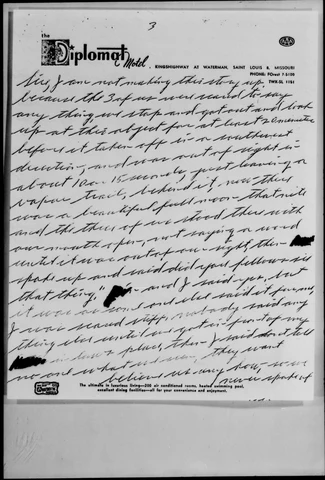 3
the
Diplomat
Motel
KINGSHIGHWAY AT WATERMAN, SAINT LOUIS 8, MISSOURI
PHONE: FOrest 7-5100
TWX-SL 1151
Sir, I am not making this story up
because the 3 of us were scared to say
any thing we stop and got out and look
up at this object for at least 2 minutes
before it taken off in a southwest
direction, and was out of sight in
about 10 or 15 seconds, just leaving a
vapor trail, behind it, now there
was a beautiful full moon that nite
and the three of us stood there with
our mouth open, not saying a word
until it was out of our sight, then
spoke up and said did you fellows see
that thing," and I said yes, but
it was no one else said it for me,
I was scared stiff, nobody said any
thing else until we got in front of my
place, then I said don't tell
no one what we saw, they wont
believe us any how, were
never spoke of
The ultimate in luxurious living—200 air conditioned rooms, heated swimming pool,
excellent dining facilities—all for your convenience and enjoyment.